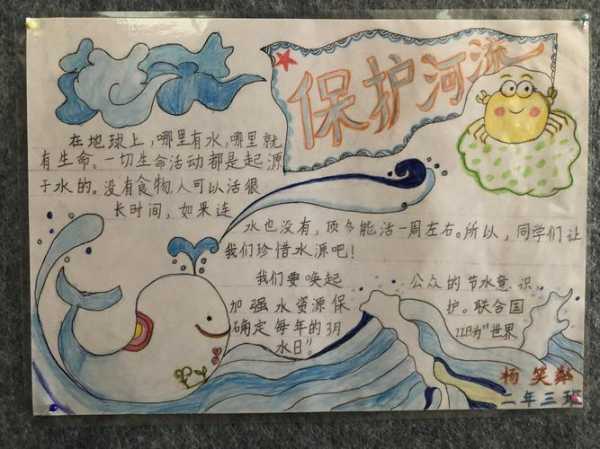 保护河流
在地球上,哪里有水,哪里就
有生命、一切生命活动都是起源
于水的。没有食物,人可以活很
长时间,如果连
水也没有,顶多能活一周左右。所以,同学们让
我们珍惜水源吧!
我们要唤起 公众的节水意识
加强水资源保 护。联合国
确定每年的3月 22日为"世界
水日"。
杨笑
二年三班